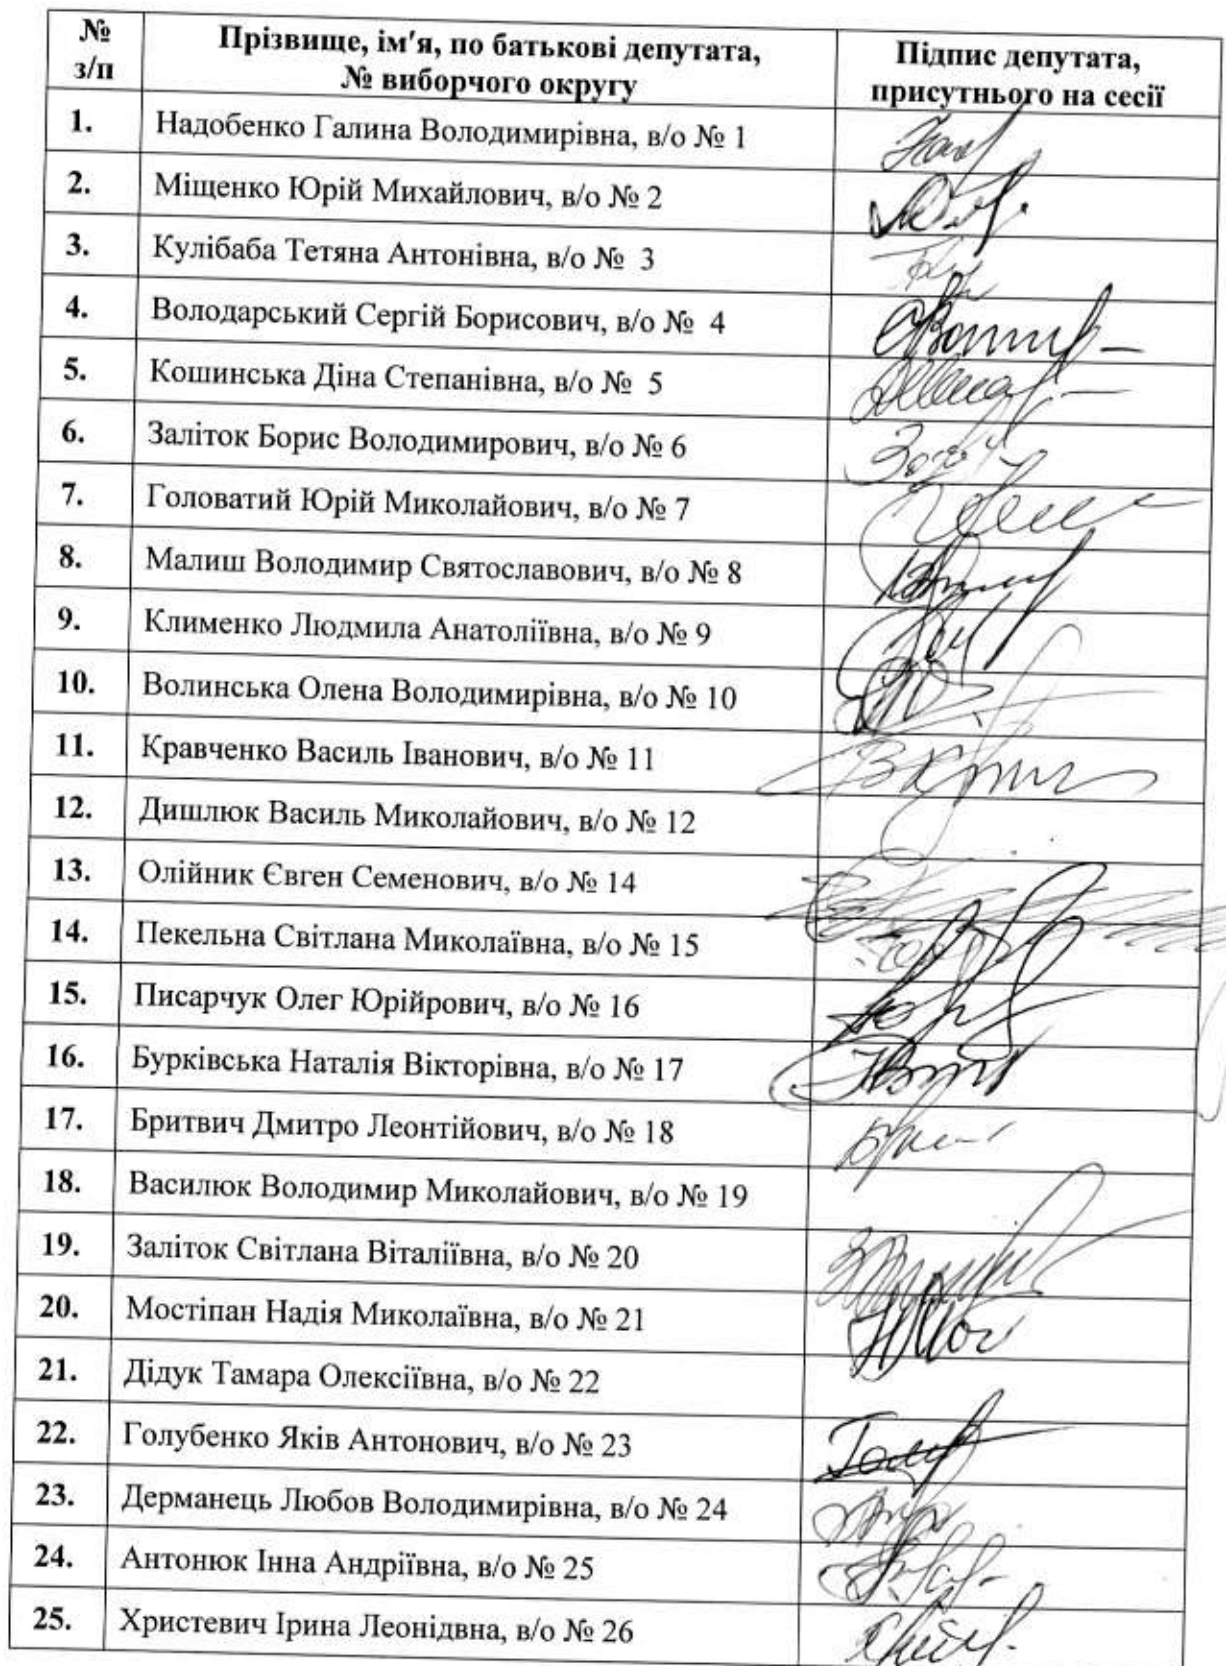 № з/п Прізвище, ім'я, по батькові депутата, № виборчого округу Підпис депутата, присутнього на сесії
1. Надобенко Галина Володимирівна, в/о № 1
2. Міщенко Юрій Михайлович, в/о № 2
3. Кулібаба Тетяна Антонівна, в/о № 3
4. Володарський Сергій Борисович, в/о № 4
5. Кошинська Діна Степанівна, в/о № 5
6. Заліток Борис Володимирович, в/о № 6
7. Головатий Юрій Миколайович, в/о № 7
8. Малиш Володимир Святославович, в/о № 8
9. Клименко Людмила Анатоліївна, в/о № 9
10. Волинська Олена Володимирівна, в/о № 10
11. Кравченко Василь Іванович, в/о № 11
12. Дишлюк Василь Миколайович, в/о № 12
13. Олійник Євген Семенович, в/о № 14
14. Пекельна Світлана Миколаївна, в/о № 15
15. Писарчук Олег Юрійрович, в/о № 16
16. Бурківська Наталія Вікторівна, в/о № 17
17. Бритвич Дмитро Леонтійович, в/о № 18
18. Василюк Володимир Миколайович, в/о № 19
19. Заліток Світлана Віталіївна, в/о № 20
20. Мостіпан Надія Миколаївна, в/о № 21
21. Дідук Тамара Олексіївна, в/о № 22
22. Голубенко Яків Антонович, в/о № 23
23. Дерманець Любов Володимирівна, в/о № 24
24. Антонюк Інна Андріївна, в/о № 25
25. Христевич Ірина Леонідвна, в/о № 26